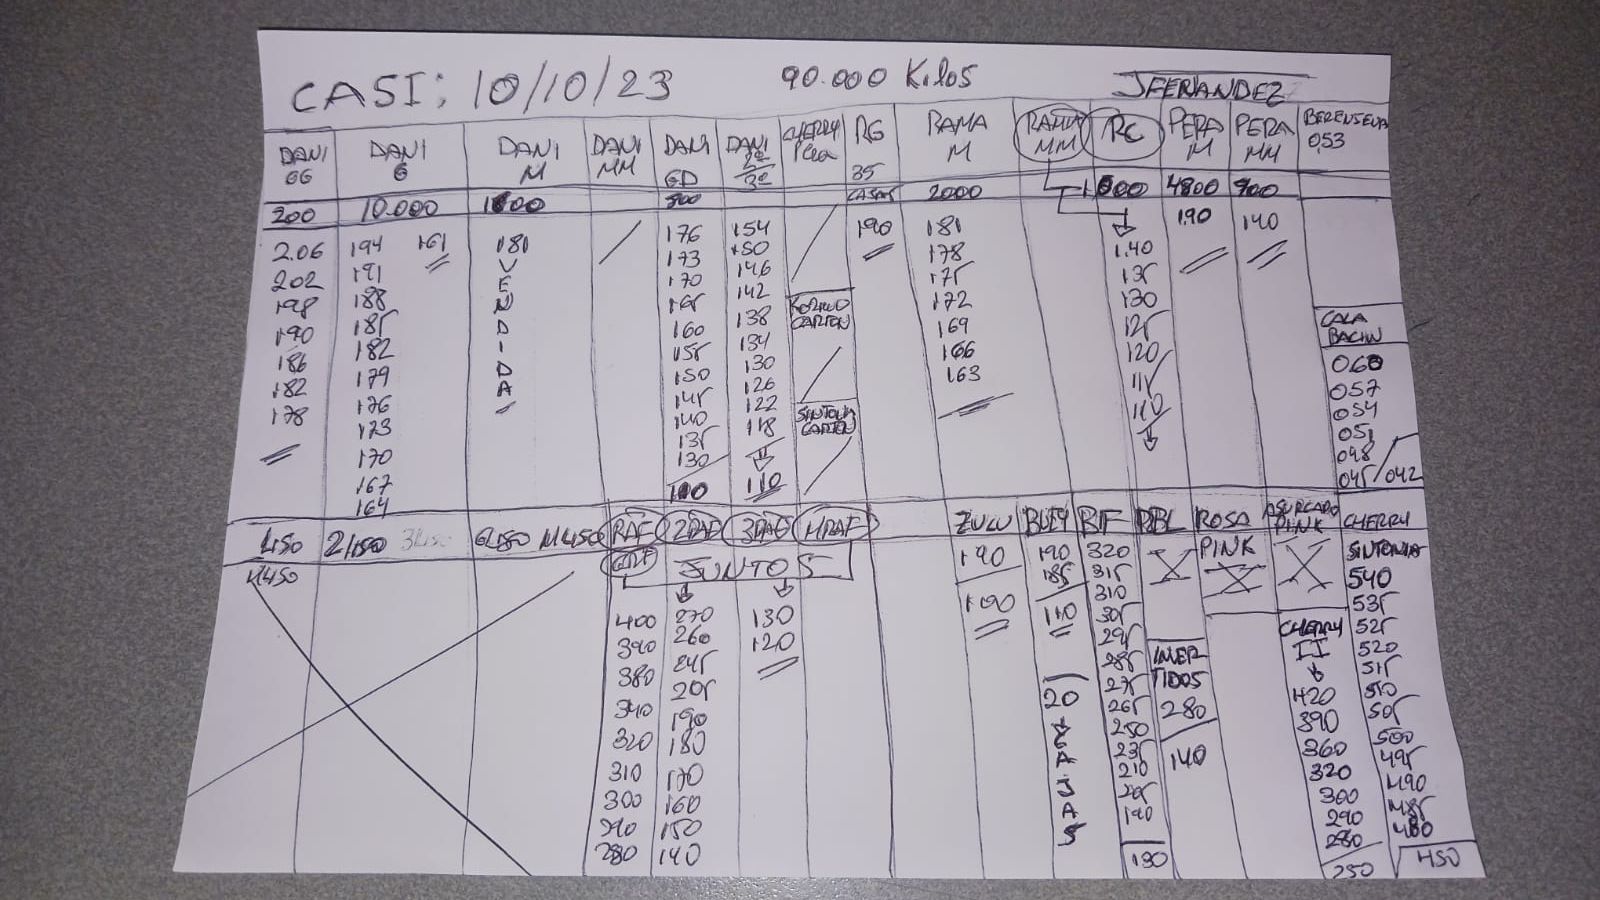 CASI: 10/10/23 90.000 Kilos JFERNANDEZ
DANI GG DANI G DANI M DANI MM DANI GD DANI 2ª 3ª CHERRY RG 35 CAJAS RAMA M RAMA MM RC PERA M PERA MM BERENJENA 0,53
200 10.000 2000 4800 900
2.06 194 161 181 176 154 190 181 1.90 140
202 191 V 173 150 178 1.40
198 188 E 170 146 175 135
190 185 N 165 142 172 130
186 182 D 160 138 169 125
182 179 I 155 134 166 120
178 176 D 150 130 163 115
173 A 145 126 110
170 140 122
167 135 118
164 130
100 110
CARTON
SINTONIA
CARTON
CALA
BACIN
060
057
054
051
048
045/042
1/450 2/450 3/450 G/450 M/450 RAF 2RAF 3RAF MRAF ZULU RIF RBL ROSA PINK ASURCADO PINK CHERRY SINTONIA
JUNTOS
400 270 130
390 260 120
380 245
340 205
320 190
310 180
300 170
290 160
280 150
140
190
190
190
185
110
20
CAJAS
320
315
310
305
295
285
275
265
250
235
210
205
190
130
INVER
TIDOS
280
140
CHERRY
II
420
390
360
320
300
290
280
250
540
535
525
520
515
510
505
500
495
490
485
480
450